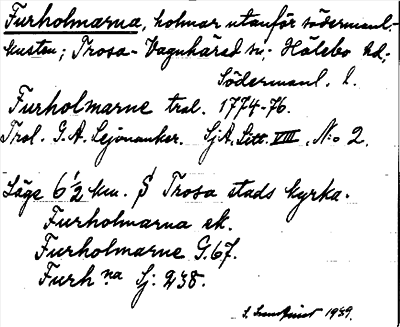 Furholmarna, holmar utanför södermanl.-
kusten; Trosa-Vagnhärad sn; Hölebo hd;
Södermanl. l.
Furholmarne tral. 1774-76.
Trol. G.A. Lejonanker. SjA, Litt. VIII, No 2.
Läge 6½ km. S Trosa stads kyrka.
Furholmarna ek.
Furholmarne G. 67.
Furh.na Sj: 238.
1939.